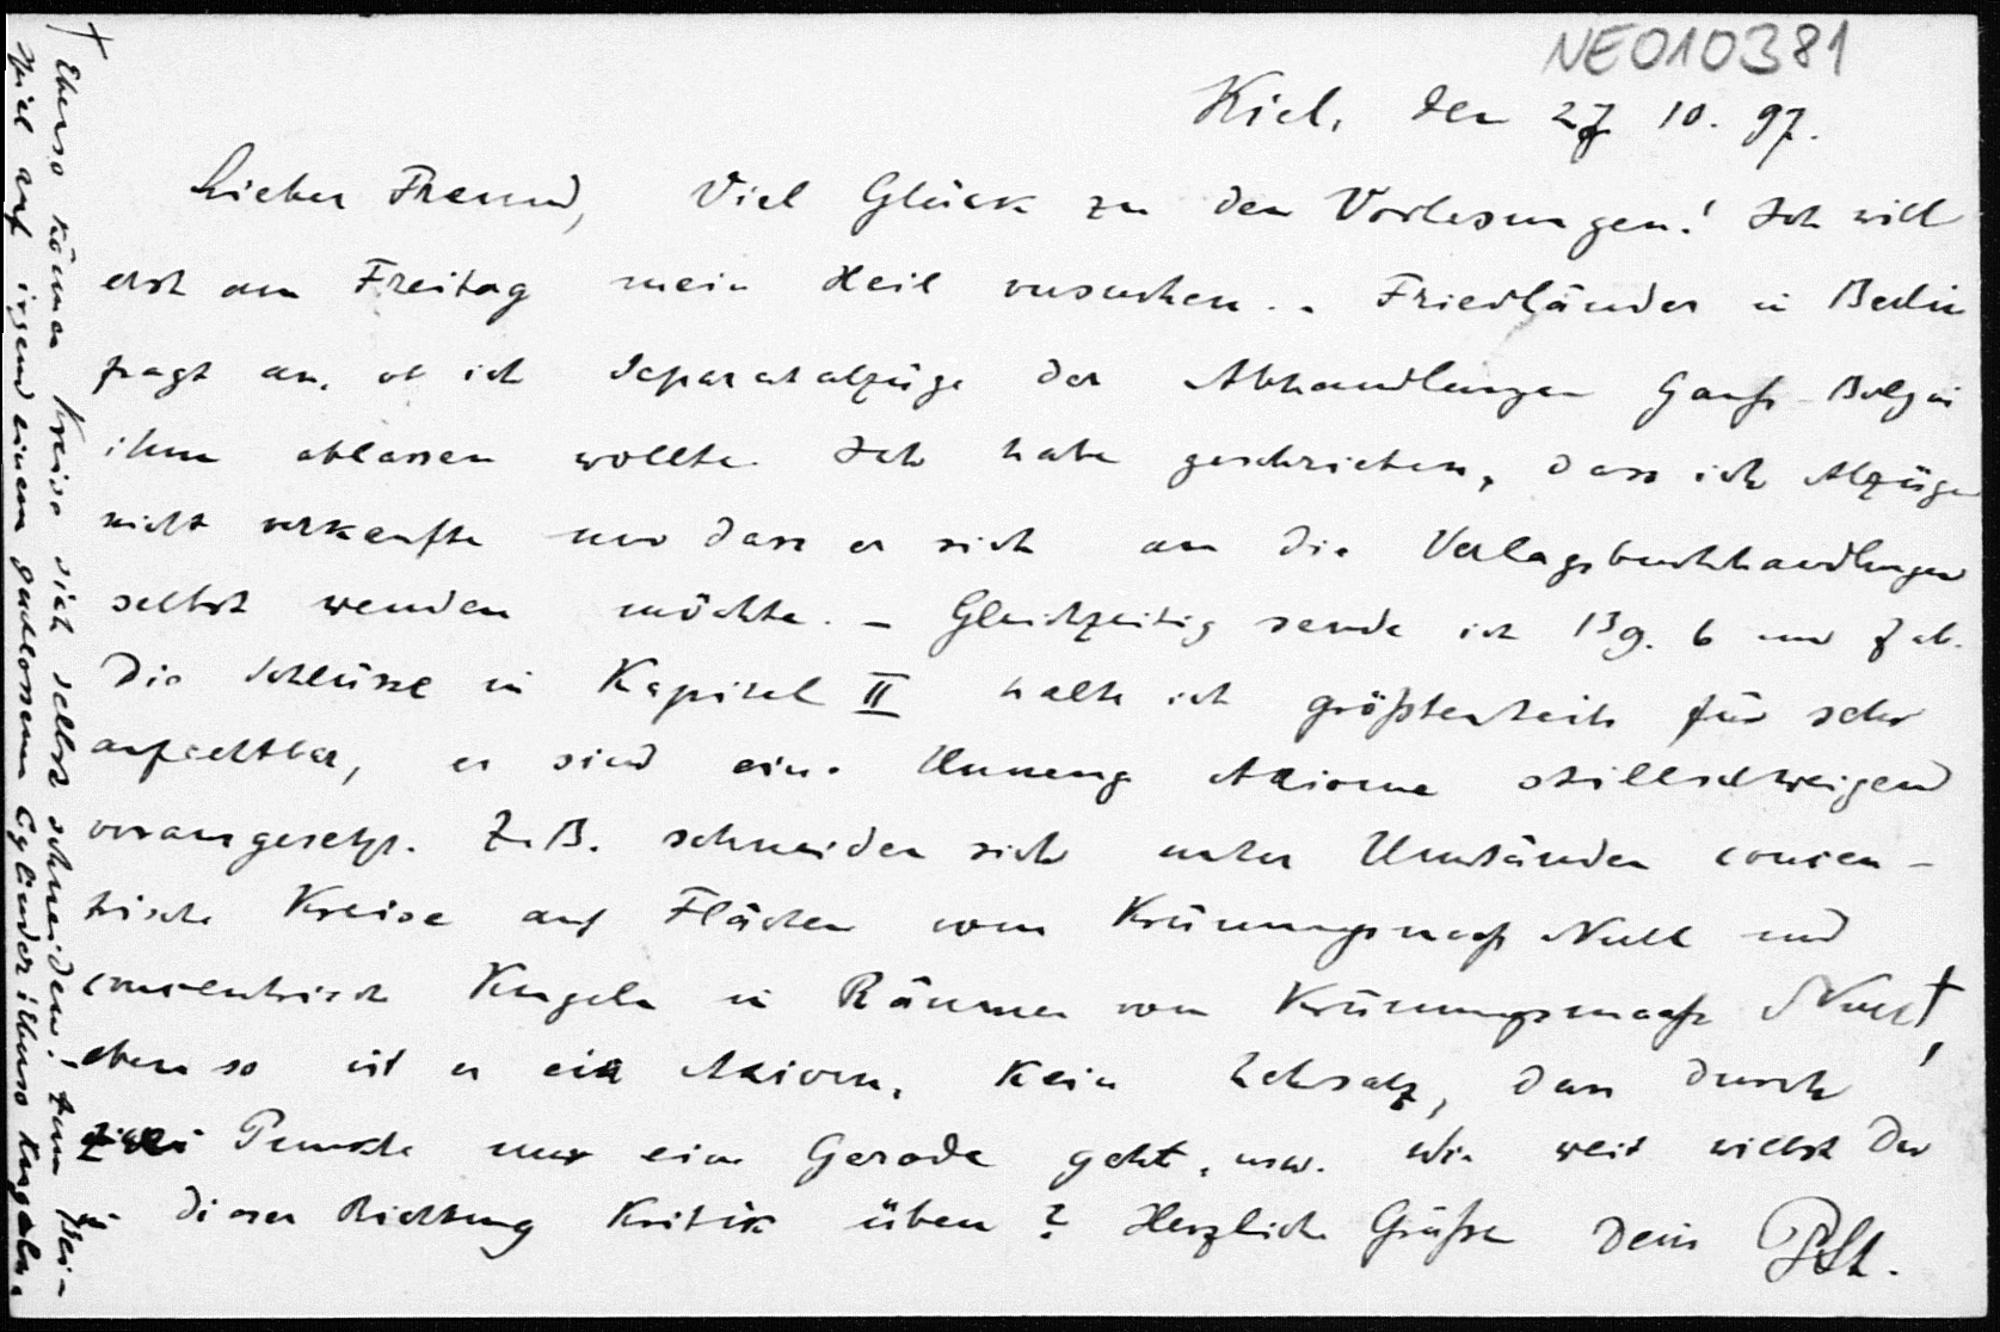 NE010381
Kiel, den 27 10. 97.
Lieber Freund, Viel Glück zu den Vorlesungen! Ich will
erst am Freitag mein Heil versuchen. . Friedländer in Berlin
fragt an, ob ich Separatabzüge der Abhandlungen Gauß-Bolyai
ihm ablassen wollte. Ich habe geschrieben, dass ich Abzüge
nicht verkaufte und dass er sich an die Verlagsbuchhandlungen
selbst wenden möchte. – Gleichzeitig sende ich Bg. 6 und 7 ab.
Die Schlüsse in Kapitel II halte ich größtenteils für sehr
anfechtbar, es sind eine Unmenge Axiome stillschweigend
vorausgesetzt. Z. B. schneiden sich unter Umständen concen-
trische Kreise auf Flächen vom Krümmungsmaß Null und
concentrische Kugeln in Räumen vom Krümmungsmaaß Null†,
ebenso ist es ein Axiom, kein Lehrsatz, dass durch
zwei Punkte nur eine Gerade geht, usw. Wie weit willst Du
in dieser Richtung Kritik üben? Herzliche Grüße Dein PSt.
† Ebenso können Kreise sich selbst schneiden! zum Bei-
spiel auf irgend einem geschlossenen Cylinder; ebenso Kugeln.